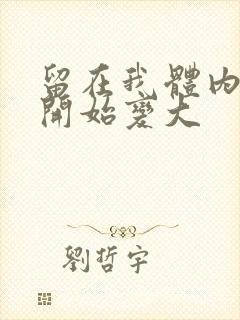 留在我體內
開始變大
劉哲宇